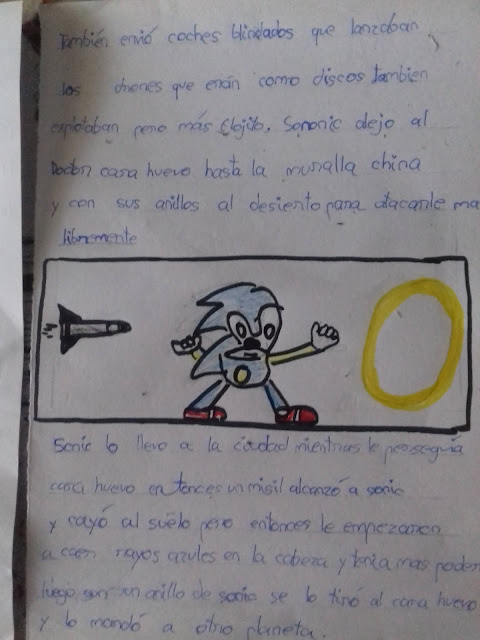 También envió coches blindados que lanzaban
los drones que erán como discos tambien
explotaban pero más flojito. Sononic dejo al
Doctor cara huevo hasta la muralla china
y con sus anillos al desiento para atacarle ma
libremente
Sonic lo llevo a la ciudad mientras le peoseguía
cara huevo entonces un misil alcanzó a sonic
y cayó al suelo pero entonces le empezaron
a caer rayos azules en la cabeza y tenia mas poder
luego un anillo de sonic se lo tiró al cara huevo
y lo mandó a otro planeta.